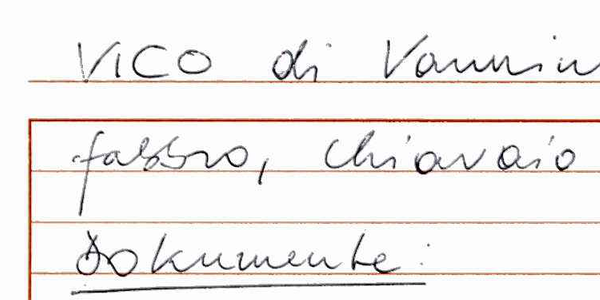 Vico di Vannin
fabbro, chiavaio
Dokumente: